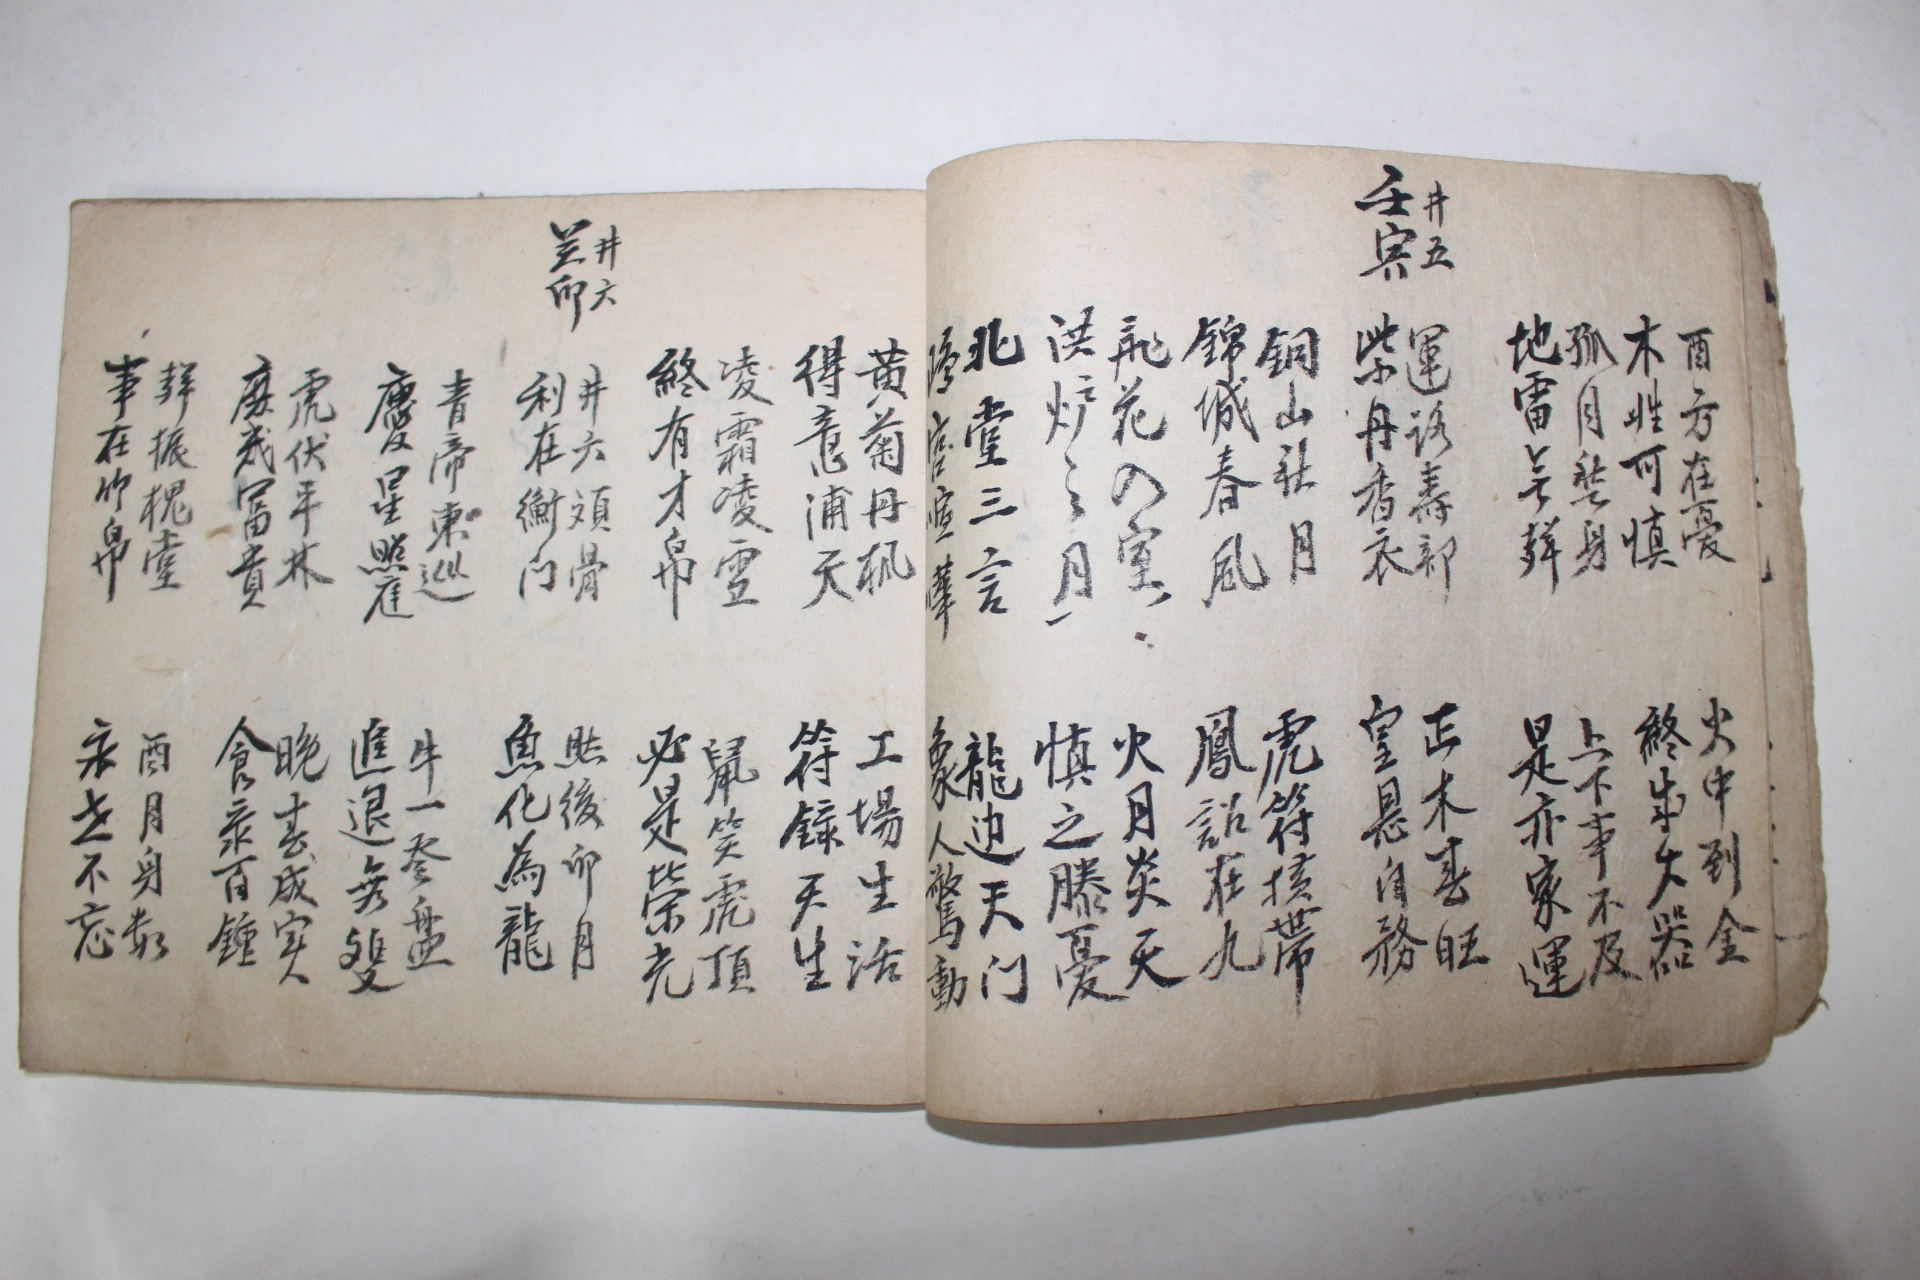 酉方在憂
木姓可慎
孤月照身
地雷無聲
火中到金
終成大器
上下事不及
是亦家運
井五
壬寅
運路壽部
紫丹香衣
銅山社月
錦城春風
花入室
洪炉之月
北堂三言
正木春旺
皇恩自務
虎符横帶
鳳詔在九
火月炎天
慎之滕憂
龍边天门
象人驚動
黃菊丹楓
得意浦天
凌霜凌雪
終有才帛
工場生活
符錄天生
鼠笑虎頂
必是榮光
井六
癸卯
井六頭骨
利在衡门
青帝東巡
慶星照庭
虎伏平林
庶幾富貴
聲振槐堂
事在竹帛
然後卯月
魚化為龍
牛一登盤
進退無雙
晚春成实
食彔百鍾
酉月身數
永世不忘